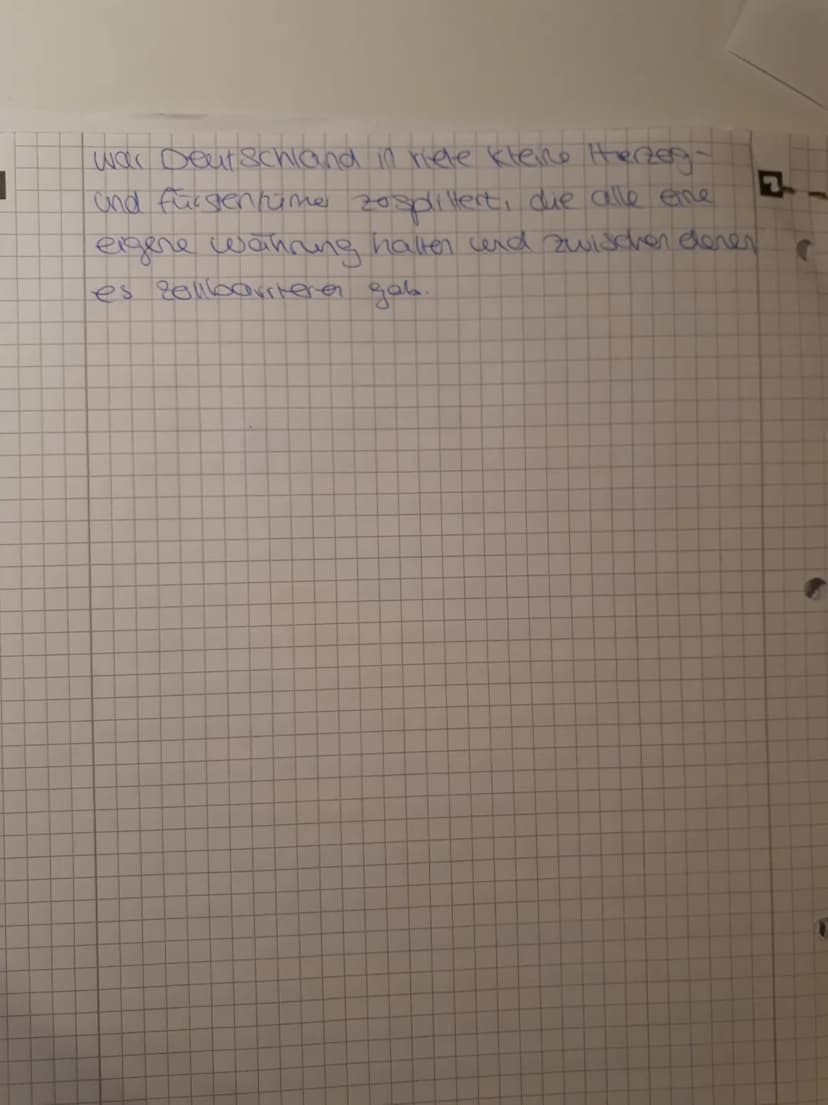 war Deutschland in viele kleine Herzog-
und fürsentümer zersplittert, die alle eine
eigene währung hatten und zwischen denen
es zollbarrieren gab.